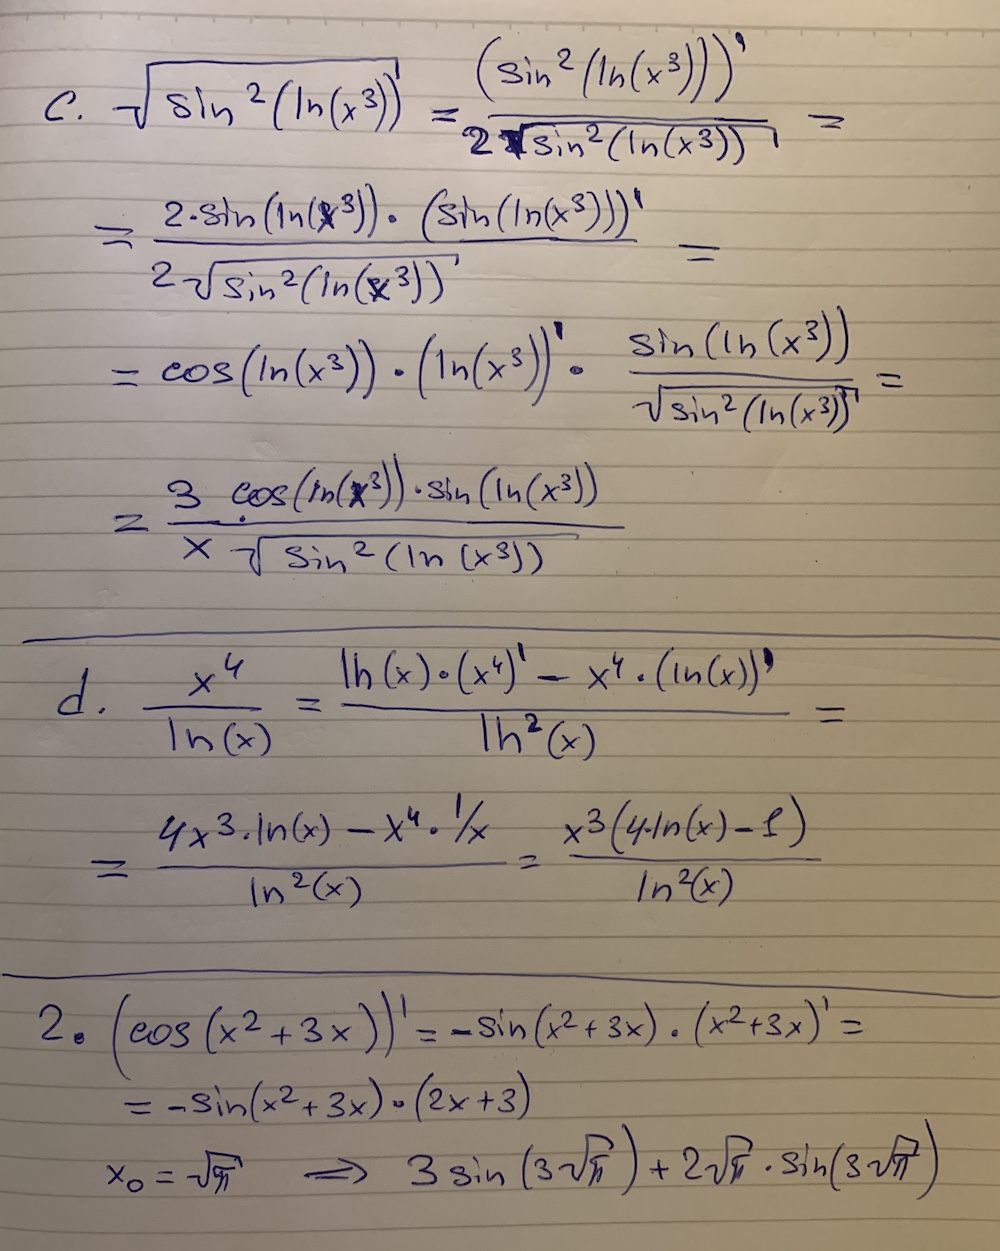 c. √(sin²(ln(x³))) = (sin²(ln(x³)))' / 2√(sin²(ln(x³))) =
= 2·sin(ln(x³))·(sin(ln(x³)))' / 2√(sin²(ln(x³))) =
= cos(ln(x³))·(ln(x³))'· sin(ln(x³)) / √(sin²(ln(x³))) =
= 3 cos(ln(x³))·sin(ln(x³)) / x √(sin²(ln(x³)))
d. x⁴ / ln(x) = ln(x)·(x⁴)' − x⁴·(ln(x))' / ln²(x) =
= 4x³·ln(x) − x⁴·1/x / ln²(x) = x³(4·ln(x) − 1) / ln²(x)
2. (cos(x²+3x))' = −sin(x²+3x)·(x²+3x)' =
= −sin(x²+3x)·(2x+3)
x₀ = √π ⇒ 3 sin(3√π) + 2√π·sin(3√π)